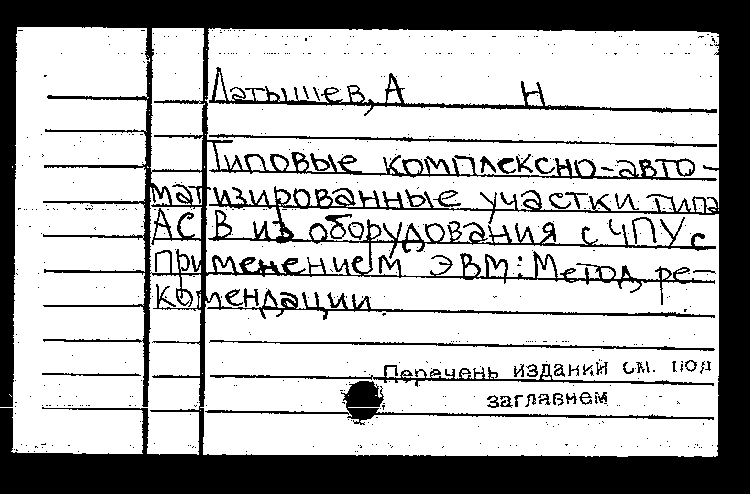 Латышев, А Н
Типовые комплексно-авто-
матизированные участки типа
АСВ из оборудования с ЧПУ с
применением ЭВМ: Метод, ре-
комендации.
Перечень изданий см. под
заглавием